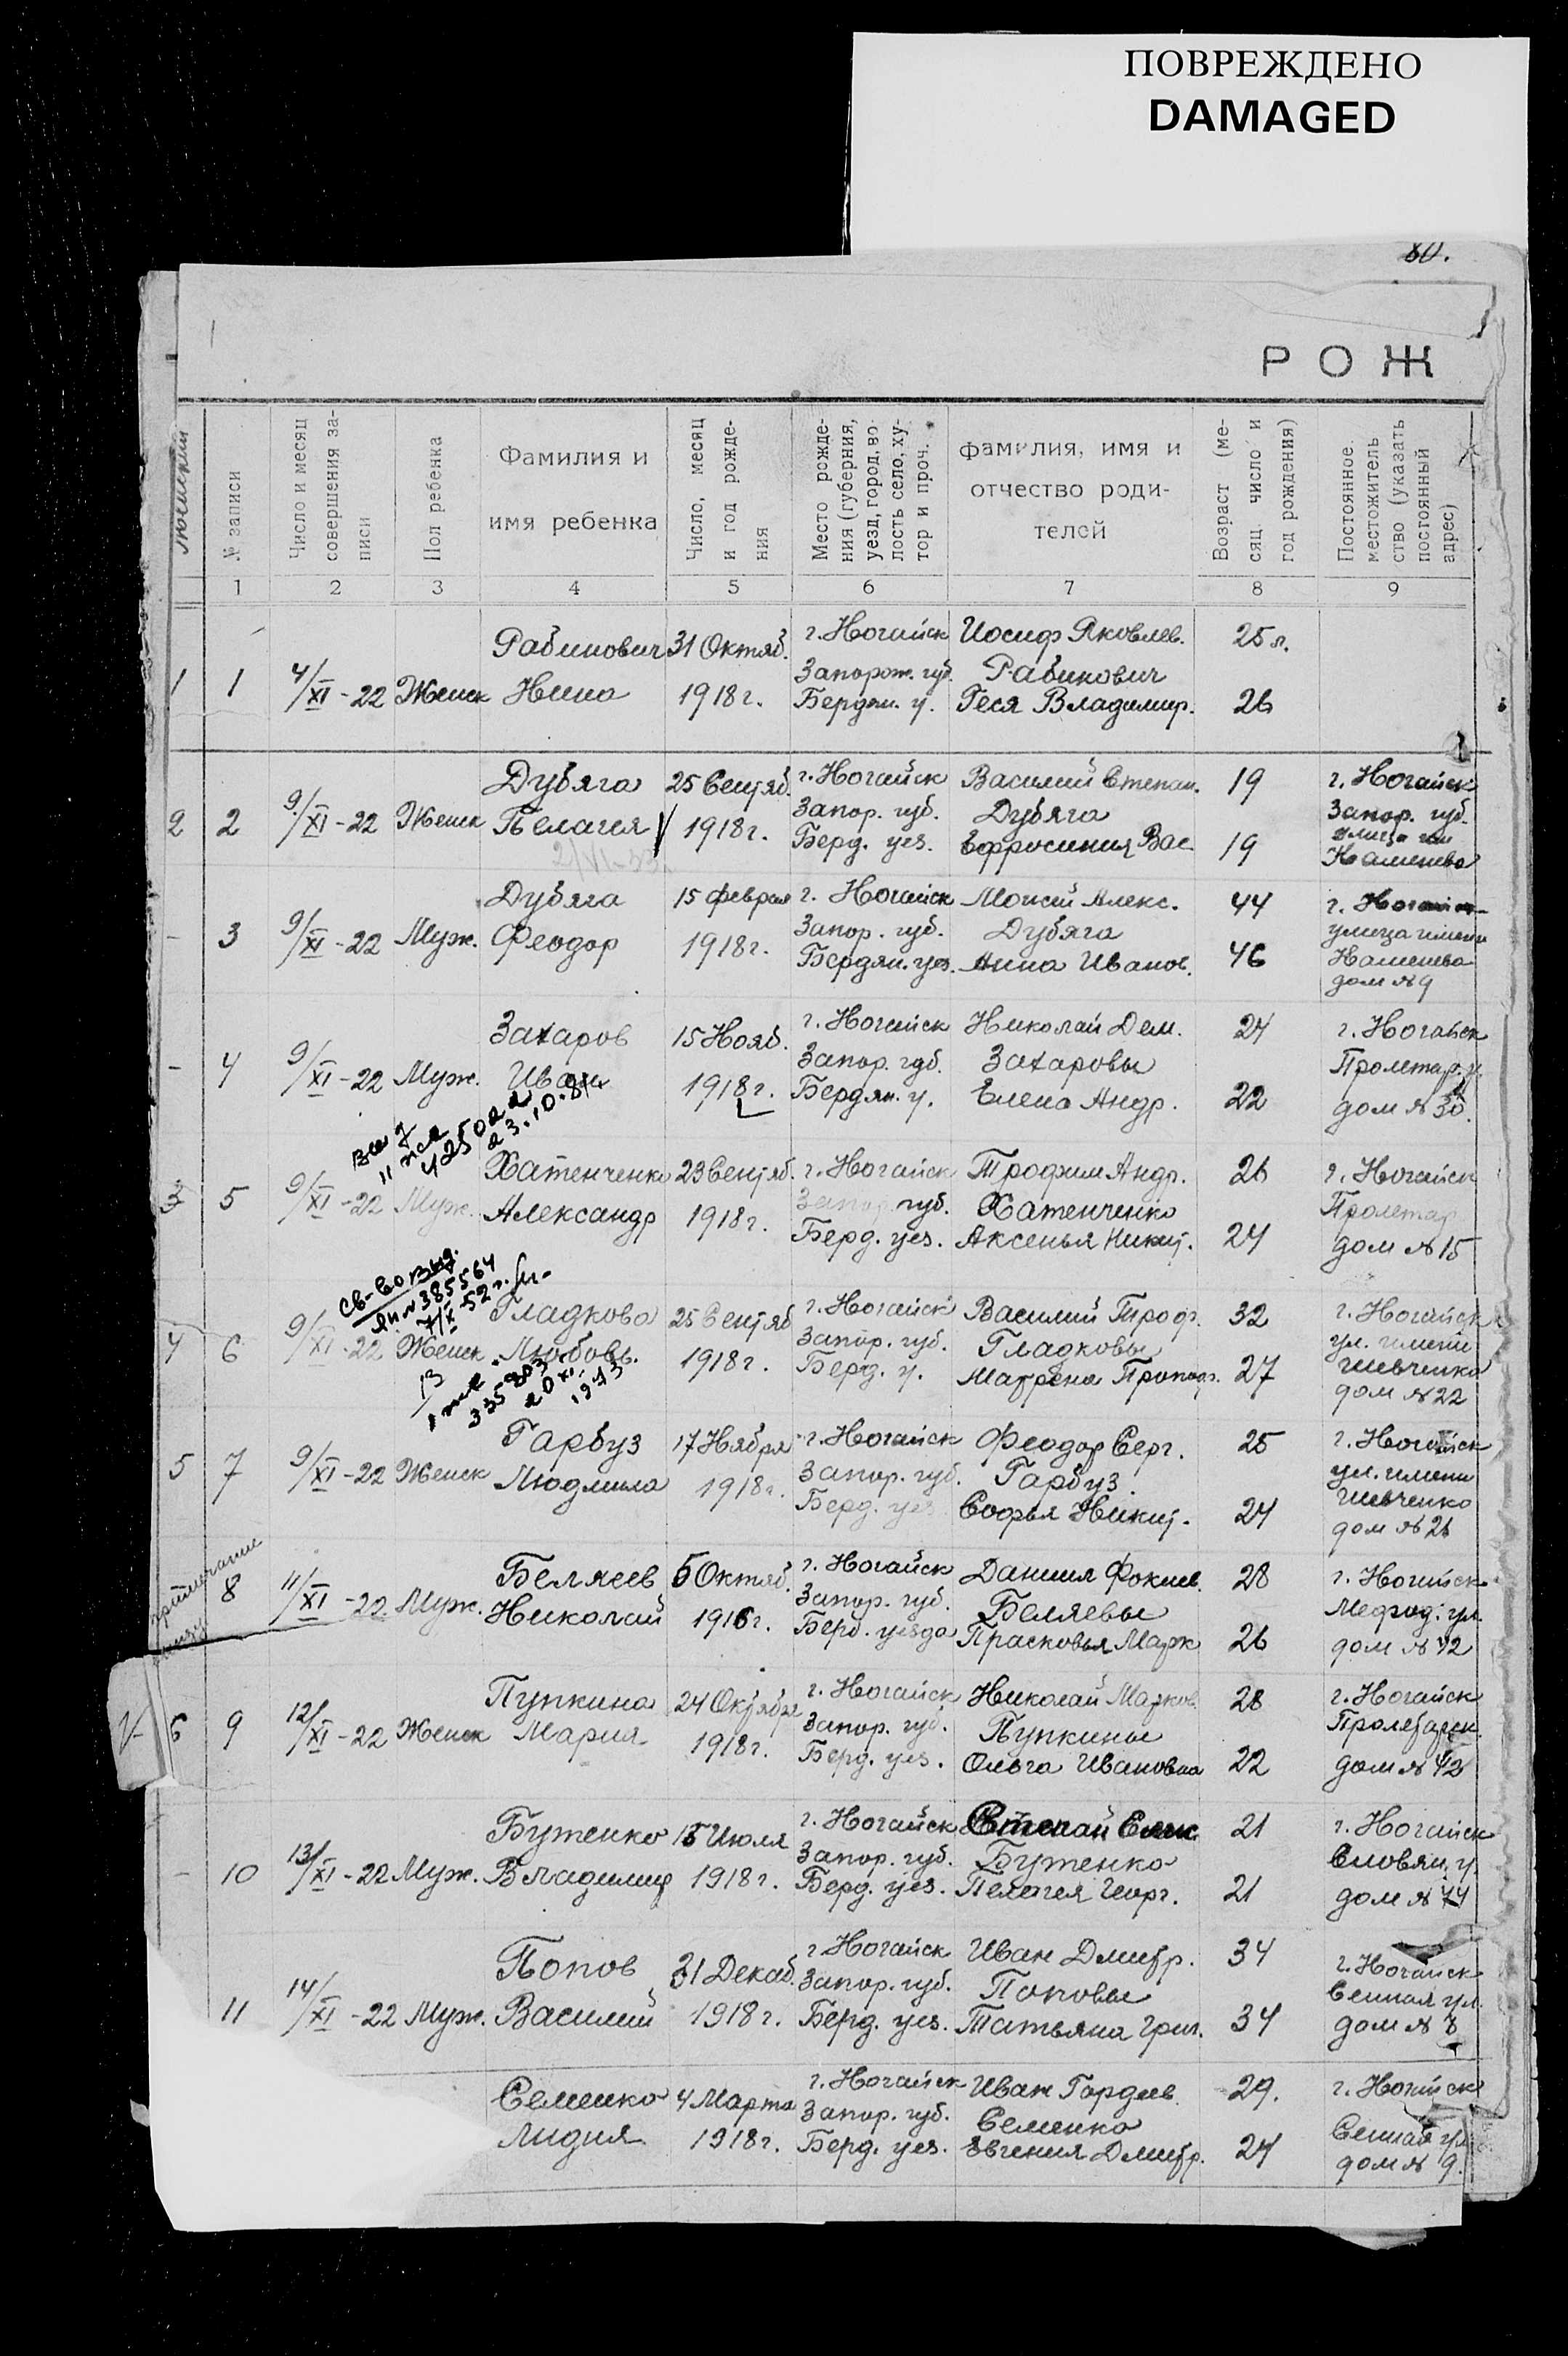 ПОВРЕЖДЕНО
DAMAGED
80.
РОЖ
женский
№ записи
Число и месяц совершения за-
писи
Пол ребенка
Фамилия и
имя ребенка
Число, месяц
и год рожде-
ния
Место рожде-
ния (губерния,
уезд, город, во-
лость село, ху-
тор и проч.
фамилия, имя и
отчество роди-
телей
Возраст (ме-
сяц число и
год рождения)
Постоянное
местожитель
ство (указать
постоянный
адрес)
1 2 3 4 5 6 7 8 9
Рабинович 31 Октяб. г. Ногайск Иосиф Яковлев. 25 л.
Запорож. губ. Рабинович
1 1 4/XI-22 Женск Нина 1918 г. Бердян. у. Геся Владимир. 26
Дубяга 25 Сентяб. г. Ногайск Василий Степан. 19 г. Ногайск
Запор. губ. Дубяга Запор. губ.
2 2 9/XI-22 Женск Пелагея 1918 г. Берд. уез. Ефросиния Вас. 19 улица
Каменева
Дубяга 15 февраля г. Ногайск Моисей Алекс. 44 г. Ногайск
Запор. губ. Дубяга улица имени
- 3 9/XI-22 Муж. Феодор 1918 г. Бердян. уез. Анна Иванов. 46 Каменева
дом № 9
Захаров 15 Нояб. г. Ногайск Николай Дем. 24 г. Ногайск
Запор. губ. Захаровы Пролетар. у.
- 4 9/XI-22 Муж. Иван 1918 г. Бердян. у. Елена Андр. 22 дом № 30.
425022
23.10.81
Хатенченко 23 Сентяб. г. Ногайск Трофим Андр. 26 г. Ногайск
Запор. губ. Хатенченко Пролетар
3 5 9/XI-22 Муж. Александр 1918 г. Берд. уез. Аксенья Никит. 24 дом № 15
Св-во выд.
385564
7/X-52 г.
Гладкова 25 Сентяб г. Ногайск Василий Троф. 32 г. Ногайск
Запор. губ. Гладковы ул. имени
4 6 9/XI-22 Женск Любовь. 1918 г. Берд. у. Матрена 27 Шевченко
дом № 22
335903
20 XI
1973
Гарбуз 17 Ноября г. Ногайск Феодор Серг. 25 г. Ногайск
Запор. губ. Гарбуз. ул. имени
5 7 9/XI-22 Женск Людмила 1918 г. Берд. уез Софья Никит. 24 Шевченко
дом № 26
Беляев 5 Октяб. г. Ногайск Даниил Фокиев. 28 г. Ногайск
Запор. губ. Беляевы Мефод. ул.
8 11/XI-22 Муж. Николай 1916 г. Берд. уезда Прасковья Марк 26 дом № 42
Пупкина 24 Октября г. Ногайск Николай Марков. 28 г. Ногайск
Запор. губ. Пупкины Пролетарск.
6 9 12/XI-22 Женск Мария 1918 г. Берд. уез. Ольга Ивановна 22 дом № 42
Бутенко 15 Июля г. Ногайск Степан 21 г. Ногайск
Запор. губ. Бутенко Словян. у.
- 10 13/XI-22 Муж. Владимир 1918 г. Берд. уез. Пелагея Георг. 21 дом № 44
Попов 31 Декаб. г. Ногайск Иван Дмитр. 34 г. Ногайск
Запор. губ. Поповы Сенная ул.
11 14/XI-22 Муж. Василий 1918 г. Берд. уез. Татьяна Григ. 34 дом № 8
Семенко 4 Марта г. Ногайск Иван Гордеев. 29. г. Ногайск
Запор. губ. Семенко Сенная ул
Лидия 1918 г. Берд. уез. Евгения Дмитр. 24 дом № 9.